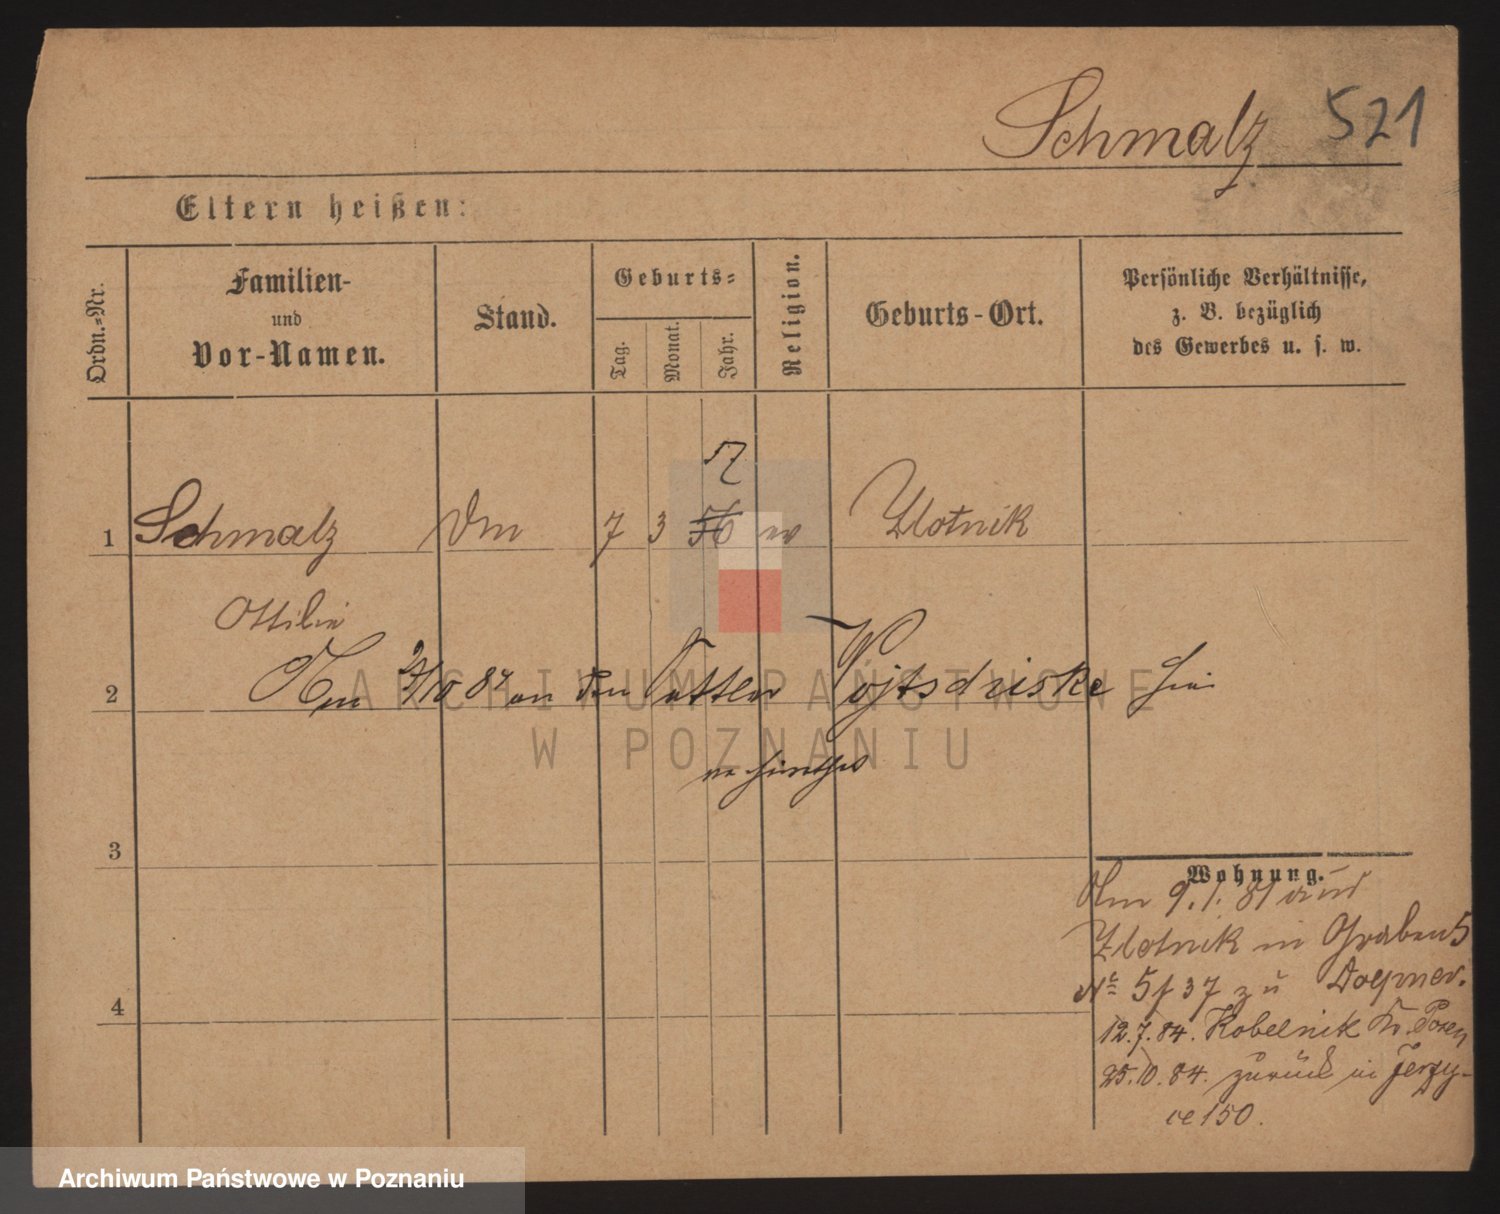 Schmalz 521
Eltern heißen:
Ordn.-Nr.
Familien-
und
Vor-Namen.
Stand.
Geburts-
Tag.
Monat.
Jahr.
Religion.
Geburts-Ort.
Persönliche Verhältnisse,
z. B. bezüglich
des Gewerbes u. s. w.
1 Schmalz 7 3 56 ev Zlotnik
Ottilie
2 87 an den
ARCHIWUM PAŃSTWOWE
W POZNANIU
3
Wohnung.
Am 9. 1. 81 aus
Zlotnik in Graben 5
4
No 5 / 37 zu
12.7.84. Kobelnik Kr. Posen
25.10.84. zurück in Jerzy-
ce 150.
Archiwum Państwowe w Poznaniu